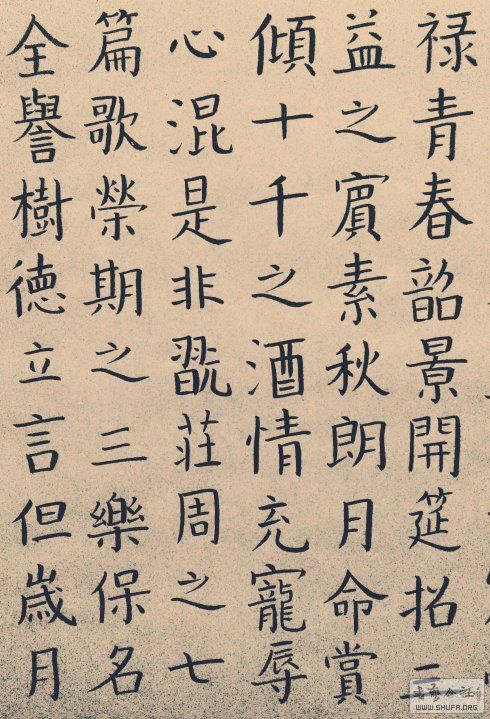 禄青春韶景開筵招
益之賓素秋朗月命賞
傾十千之酒情充寵辱
心混是非翫莊周之七
篇歌榮期之三樂保名
全譽樹德立言但歲月
WWW.SHUFA.ORG